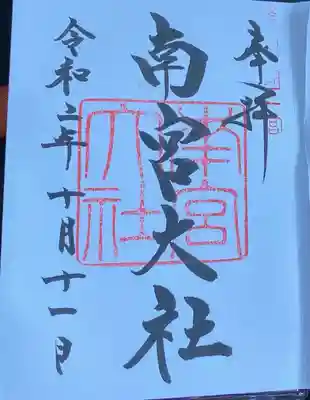 奉拝
南宮大社
南宮
大社
令和二年十月十一日